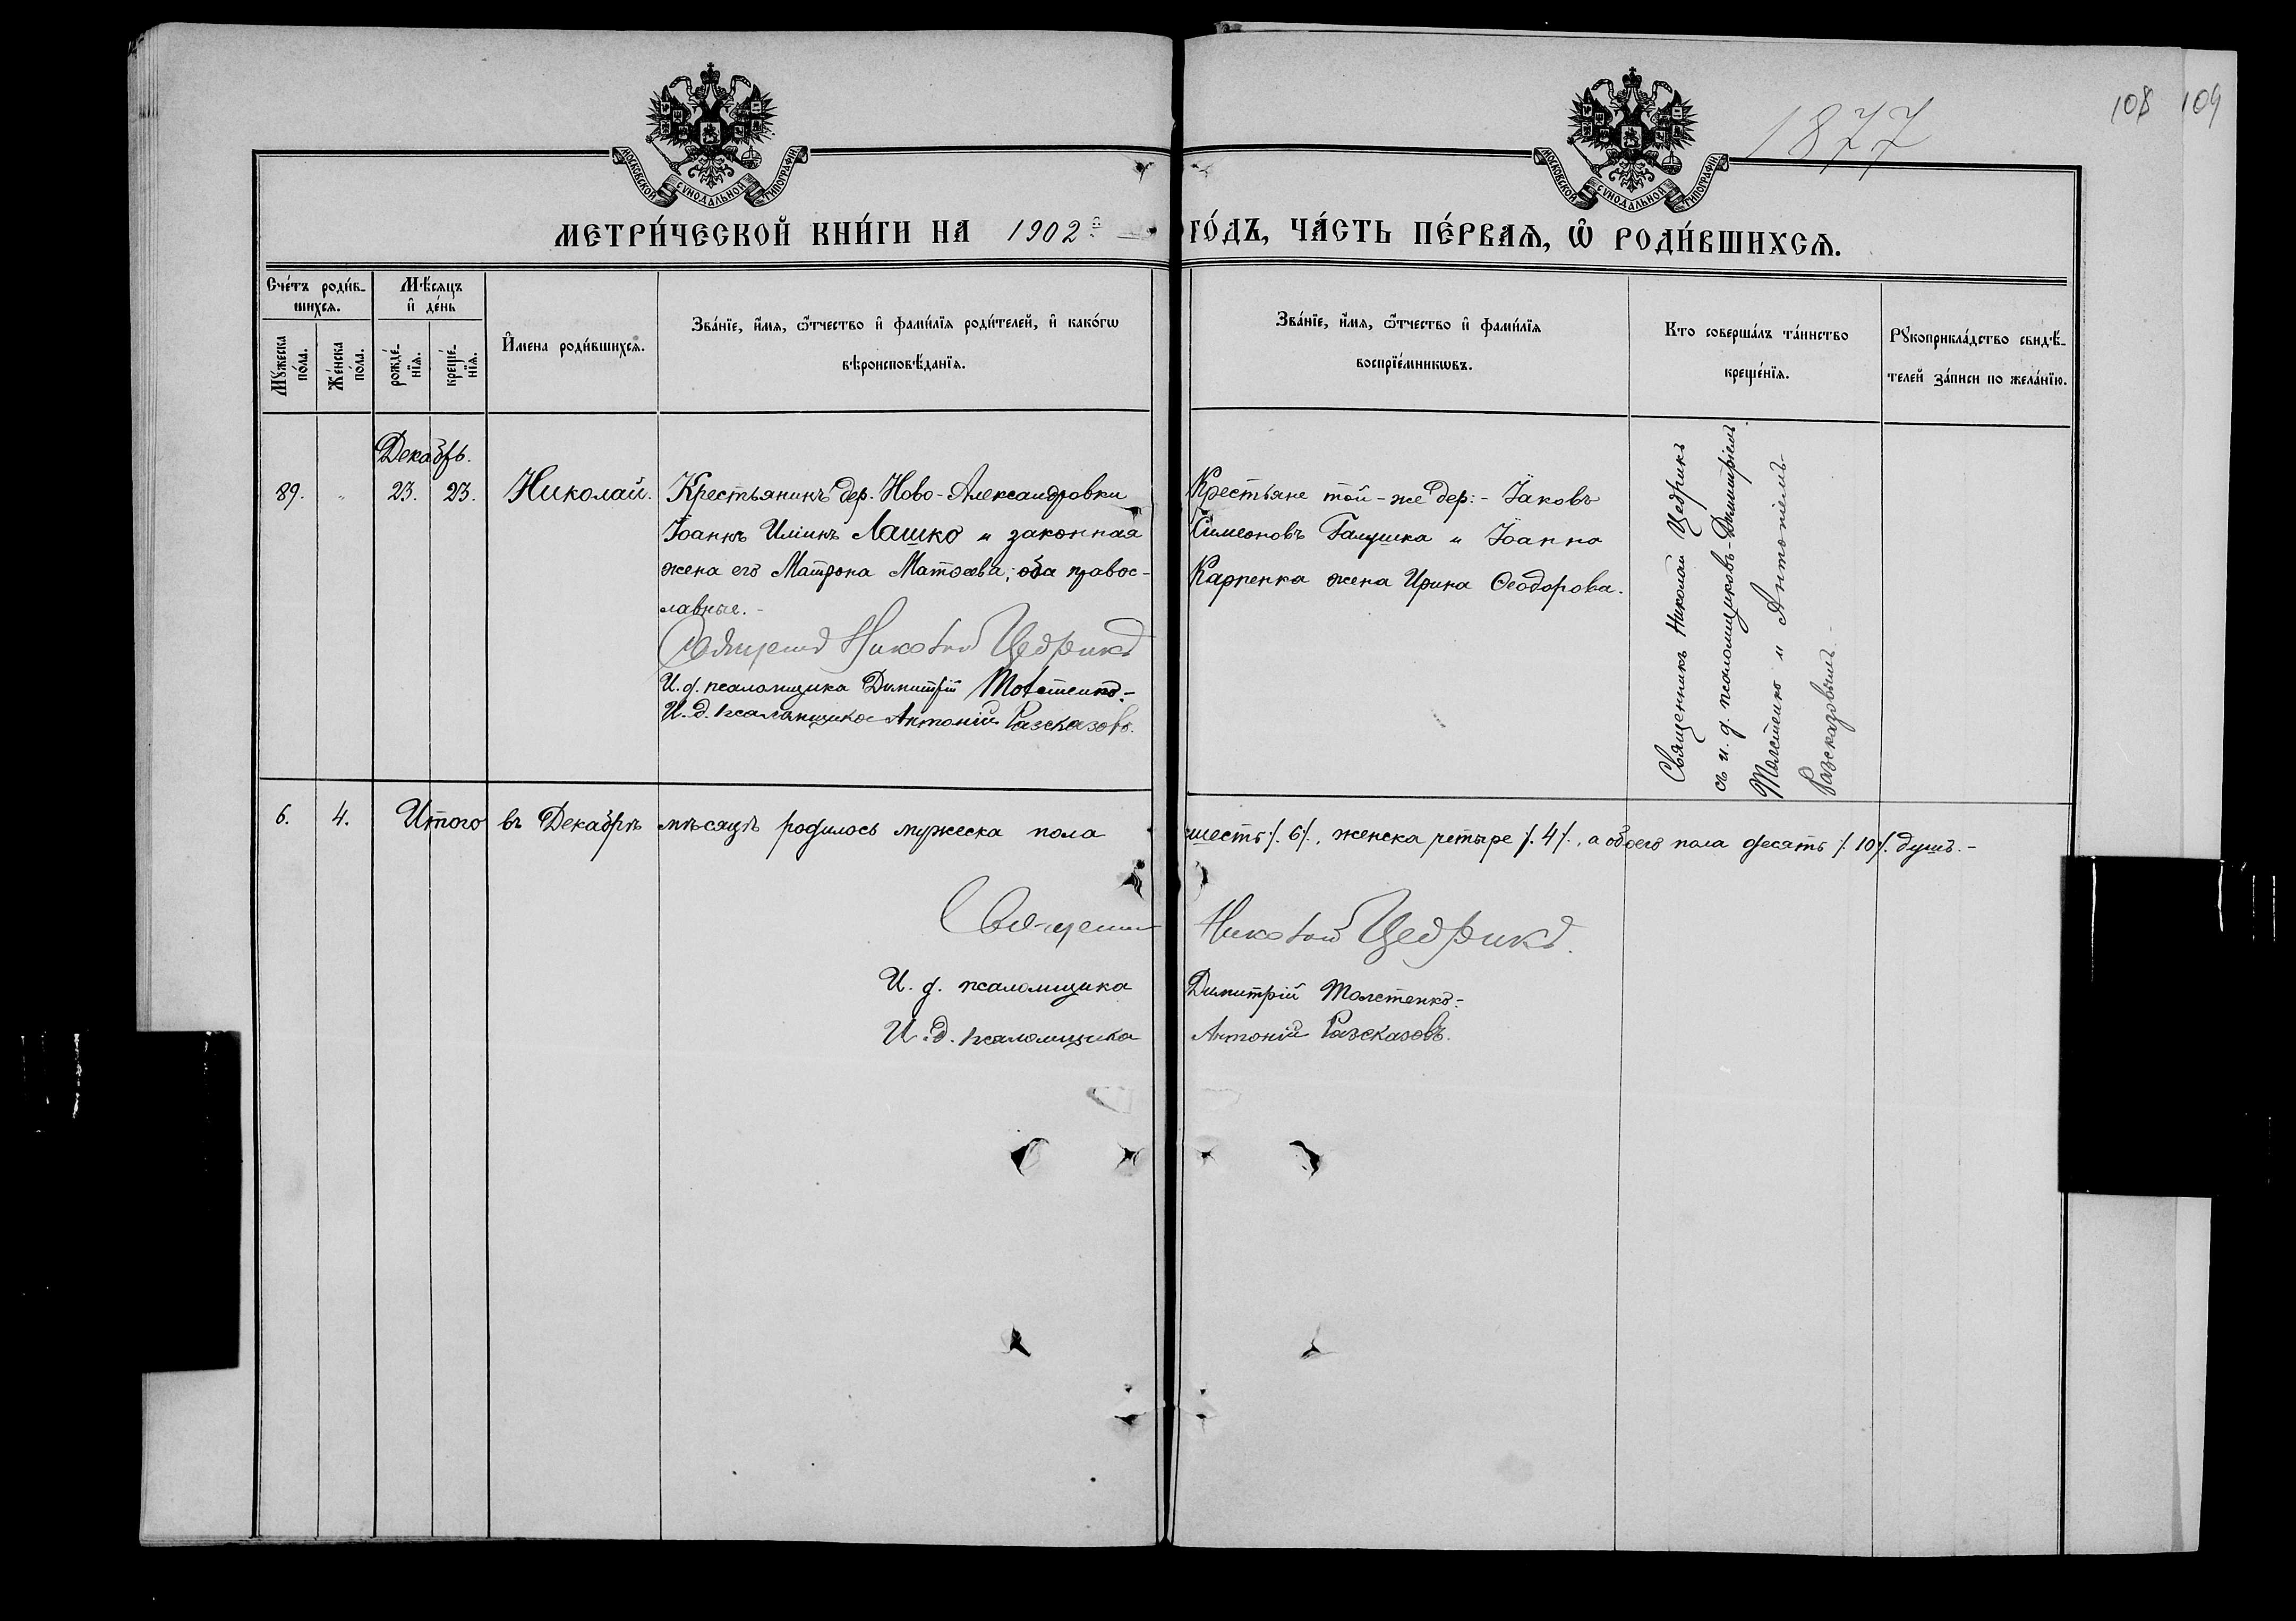 1877
108 109
МОСКОВСКОЙ СѴНОДАЛЬНОЙ ТИПОГРАФІИ
МОСКОВСКОЙ СѴНОДАЛЬНОЙ ТИПОГРАФІИ
МЕТРИ́ЧЕСКОЙ КНИ́ГИ НА 1902й ГО́ДЪ, ЧА́СТЬ ПЕ́РВАѦ, Ѡ҆ РОДИ́ВШИХСѦ.
Сче́тъ роди́в-
шихсѧ.
Мꙋ́жеска
по́ла.
Же́нска
по́ла.
Мѣ́сѧцъ
и҆ де́нь
рожде́-
нїѧ.
креще́-
нїѧ.
И҆мена роди́вшихсѧ.
Зва́нїе, и҆́мѧ, ѻ҆́тчество и҆ фами́лїѧ роди́телей, и҆ како́гѡ
вѣроисповѣ́данїѧ.
Зва́нїе, и҆́мѧ, ѻ҆́тчество и҆ фами́лїѧ
воспрїе́мникѡвъ.
Кто соверша́лъ та́инство
креще́нїѧ.
Рꙋкоприкла́дство свидѣ́-
телей за́писи по жела́нїю.
Декабрь.
89. „ 23. 23. Николай.
Крестьянинъ дер. Ново-Александровки
Іоаннъ Иліинъ Лашко и законная
жена его Матрона Матѳеева; оба правос-
лавные.-
Священ Николай Цедрикъ
И. д. псаломщика Димитрій Толстенко.-
И. д. псаломщика Антоній Разсказовъ.
Крестьяне той-же дер:- Іаковъ
Симеоновъ Галушка и Іоанна
Карпенка жена Ирина Ѳеодорова.
Священникъ Николай Цедрикъ
съ и. д. псаломщиковъ-Димитріемъ
Толстенко и Антоніемъ
Разсказовымъ.-
6. 4. Итого въ Декабрѣ мѣсяцѣ родилось мужеска пола шесть /. 6 /., женска четыре /. 4 /., а обоего пола десять /. 10 /. душъ.-
Священ Николай Цедрикъ.
И. д. псаломщика Димитрій Толстенко.-
И. д. псаломщика Антоній Разсказовъ.